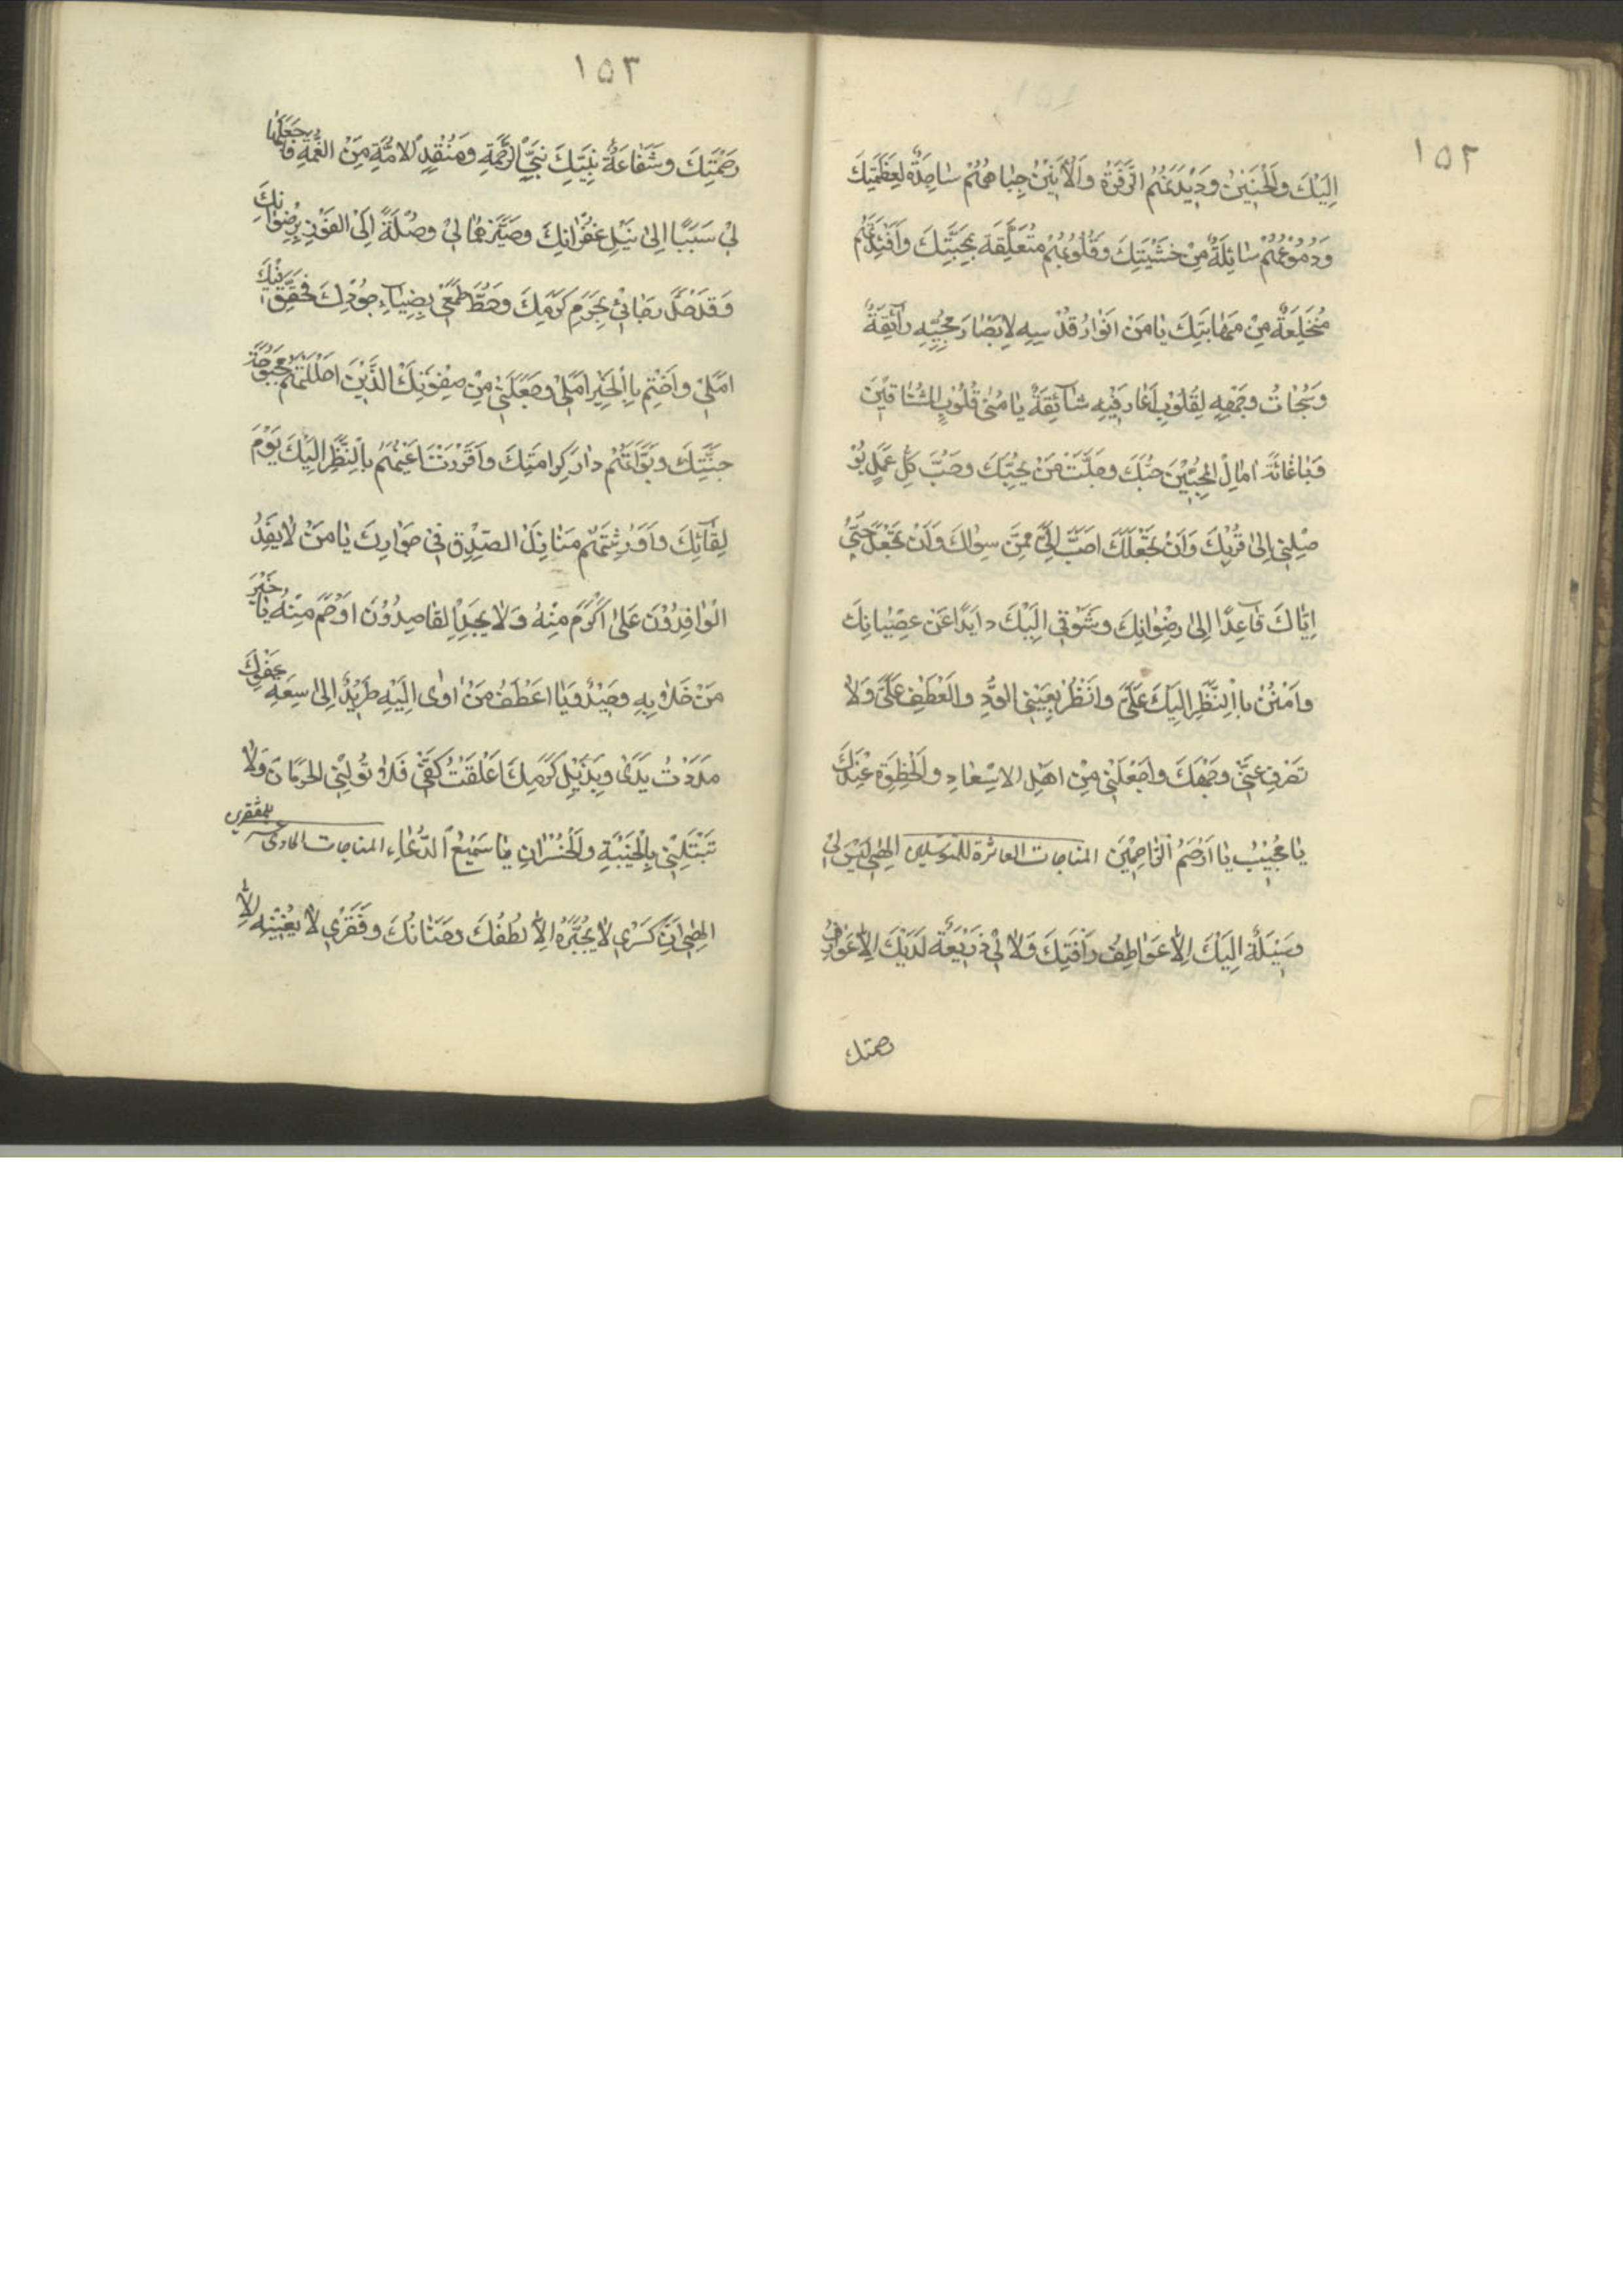 ١٥٢
اِلَيْكَ وَالْحَنِيْنِ وَدَيْدَنَهُمُ الزَّفْرَةَ وَالْاَنِيْنَ جِبَاهُهُمْ سَاجِدَةٌ لِعَظَمَتِكَ
وَدُمُوْعُهُمْ سَائِلَةٌ مِنْ خَشْيَتِكَ وَقُلُوْبُهُمْ مُتَعَلِّقَة بِمَحَبَّتِكَ وَاَفْئِدَتُهُمْ
مُنْخَلِعَةٌ مِنْ مَهَابَتِكَ يَا مَنْ اَنْوَارُ قُدْسِهِ لِاَبْصَارِ مُحِبِّيْهِ رَآئِقَةٌ
وَسُبُحَاتُ وَجْهِهِ لِقُلُوْبِ عَارِفِيْهِ شَآئِقَةٌ يَا مُنٰى قُلُوْبِ الْمُشْتَاقِيْنَ
وَيَا غَايَةَ اٰمَالِ الْمُحِبِّيْنَ حُبَّكَ وَحُبَّ مَنْ يُحِبُّكَ وَحُبَّ كُلِّ عَمَلٍ يُوْ
صِلُنِيْ اِلٰى قُرْبِكَ وَاَنْ تَجْعَلَكَ اَحَبَّ اِلَيَّ مِمَّنْ سِوَاكَ وَاَنْ تَجْعَلَ حُبِّيْ
اِيَّاكَ قَآعِدًا اِلٰى رِضْوَانِكَ وَشَوْقِيْ اِلَيْكَ دَايِدًا عَنْ عِصْيَانِكَ
وَامْنُنْ بِالنَّظَرِ اِلَيْكَ عَلَيَّ وَانْظُرْ بِعَيْنِ الْوُدِّ وَالْعَطْفِ عَلَيَّ وَلَا
تَصْرِفْ عَنِّيْ وَجْهَكَ وَاجْعَلْنِيْ مِنْ اَهْلِ الْاِسْعَادِ وَالْحُظْوَةِ عِنْدَكَ
يَا مُجِيْبُ يَا اَرْحَمَ الرَّاحِمِيْنَ المناجات العاشرة للمتوسلين اِلٰهِيْ لَيْسَ لِيْ
وَسِيْلَةٌ اِلَيْكَ اِلَّا عَوَاطِفُ رَاْفَتِكَ وَلَا لِيْ ذَرِيْعَةٌ لَدَيْكَ اِلَّا عَوَارِفُ
رحمتك
١٥٣
رَحْمَتِكَ وَشَفَاعَةُ نَبِيِّكَ نَبِيِّ الرَّحْمَةِ وَمُنْقِدِ الْاُمَّةِ مِنَ الْغُمَّةِ فَاجْعَلْهُمَا
لِيْ سَبَبًا اِلٰى نَيْلِ غُفْرَانِكَ وَصَيِّرْهُمَا لِيْ وُصْلَةً اِلَى الْفَوْزِ بِرِضْوَانِكَ
وَقَدْ حَلَّ رَجَائِيْ بِحَرَمِ كَرَمِكَ وَحَطَّ طَمَعِيْ بِضِيَاءِ جُوْدِكَ فَحَقِّقْ فِيْكَ
اَمَلِيْ وَاخْتِمْ بِالْخَيْرِ اَمَلِيْ وَجْعَلْنِيْ مِنْ صِفْوَتِكَ الَّذِيْنَ اَحْلَلْتَهُمْ بُحْبُوْحَةَ
جَنَّتِكَ وَبَوَّاْتَهُمْ دَارَ كَرَامَتِكَ وَاَقْرَرْتَ اَعْيُنَهُمْ بِالنَّظَرِ اِلَيْكَ يَوْمَ
لِقَآئِكَ وَاَوْرَثْتَهُمْ مَنَازِلَ الصِّدْقِ فِيْ جِوَارِكَ يَا مَنْ لَا يَفِدُ
الْوَافِدُوْنَ عَلٰى اَكْرَمَ مِنْهُ وَلَا يَجِدُ الْقَاصِدُوْنَ اَرْحَمَ مِنْهُ يَا خَيْرَ
مَنْ خَلَا بِهِ وَحِيْدٌ وَيَا اَعْطَفَ مَنْ اَوٰى اِلَيْهِ طَرِيْدٌ اِلٰى سَعَةِ عَفْوِكَ
مَدَدْتُ يَدَيَّ وَبِذَيْلِ كَرَمِكَ اَعْلَقْتُ كَفِّيْ فَلَا تُوْلِنِي الْحِرْمَانَ وَلَا
تَبْتَلِنِيْ بِالْخَيْبَةِ وَالْخُسْرَانِ يَا سَمِيْعَ الدُّعَاءِ المناجات الحادی عشر للمفتقرين
اِلٰهِيْ اِنَّ كَسْرِيْ لَا يَجْبُرُهُ اِلَّا لُطْفُكَ وَحَنَانُكَ وَفَقْرِيْ لَا يُغْنِيْهِ اِلَّا